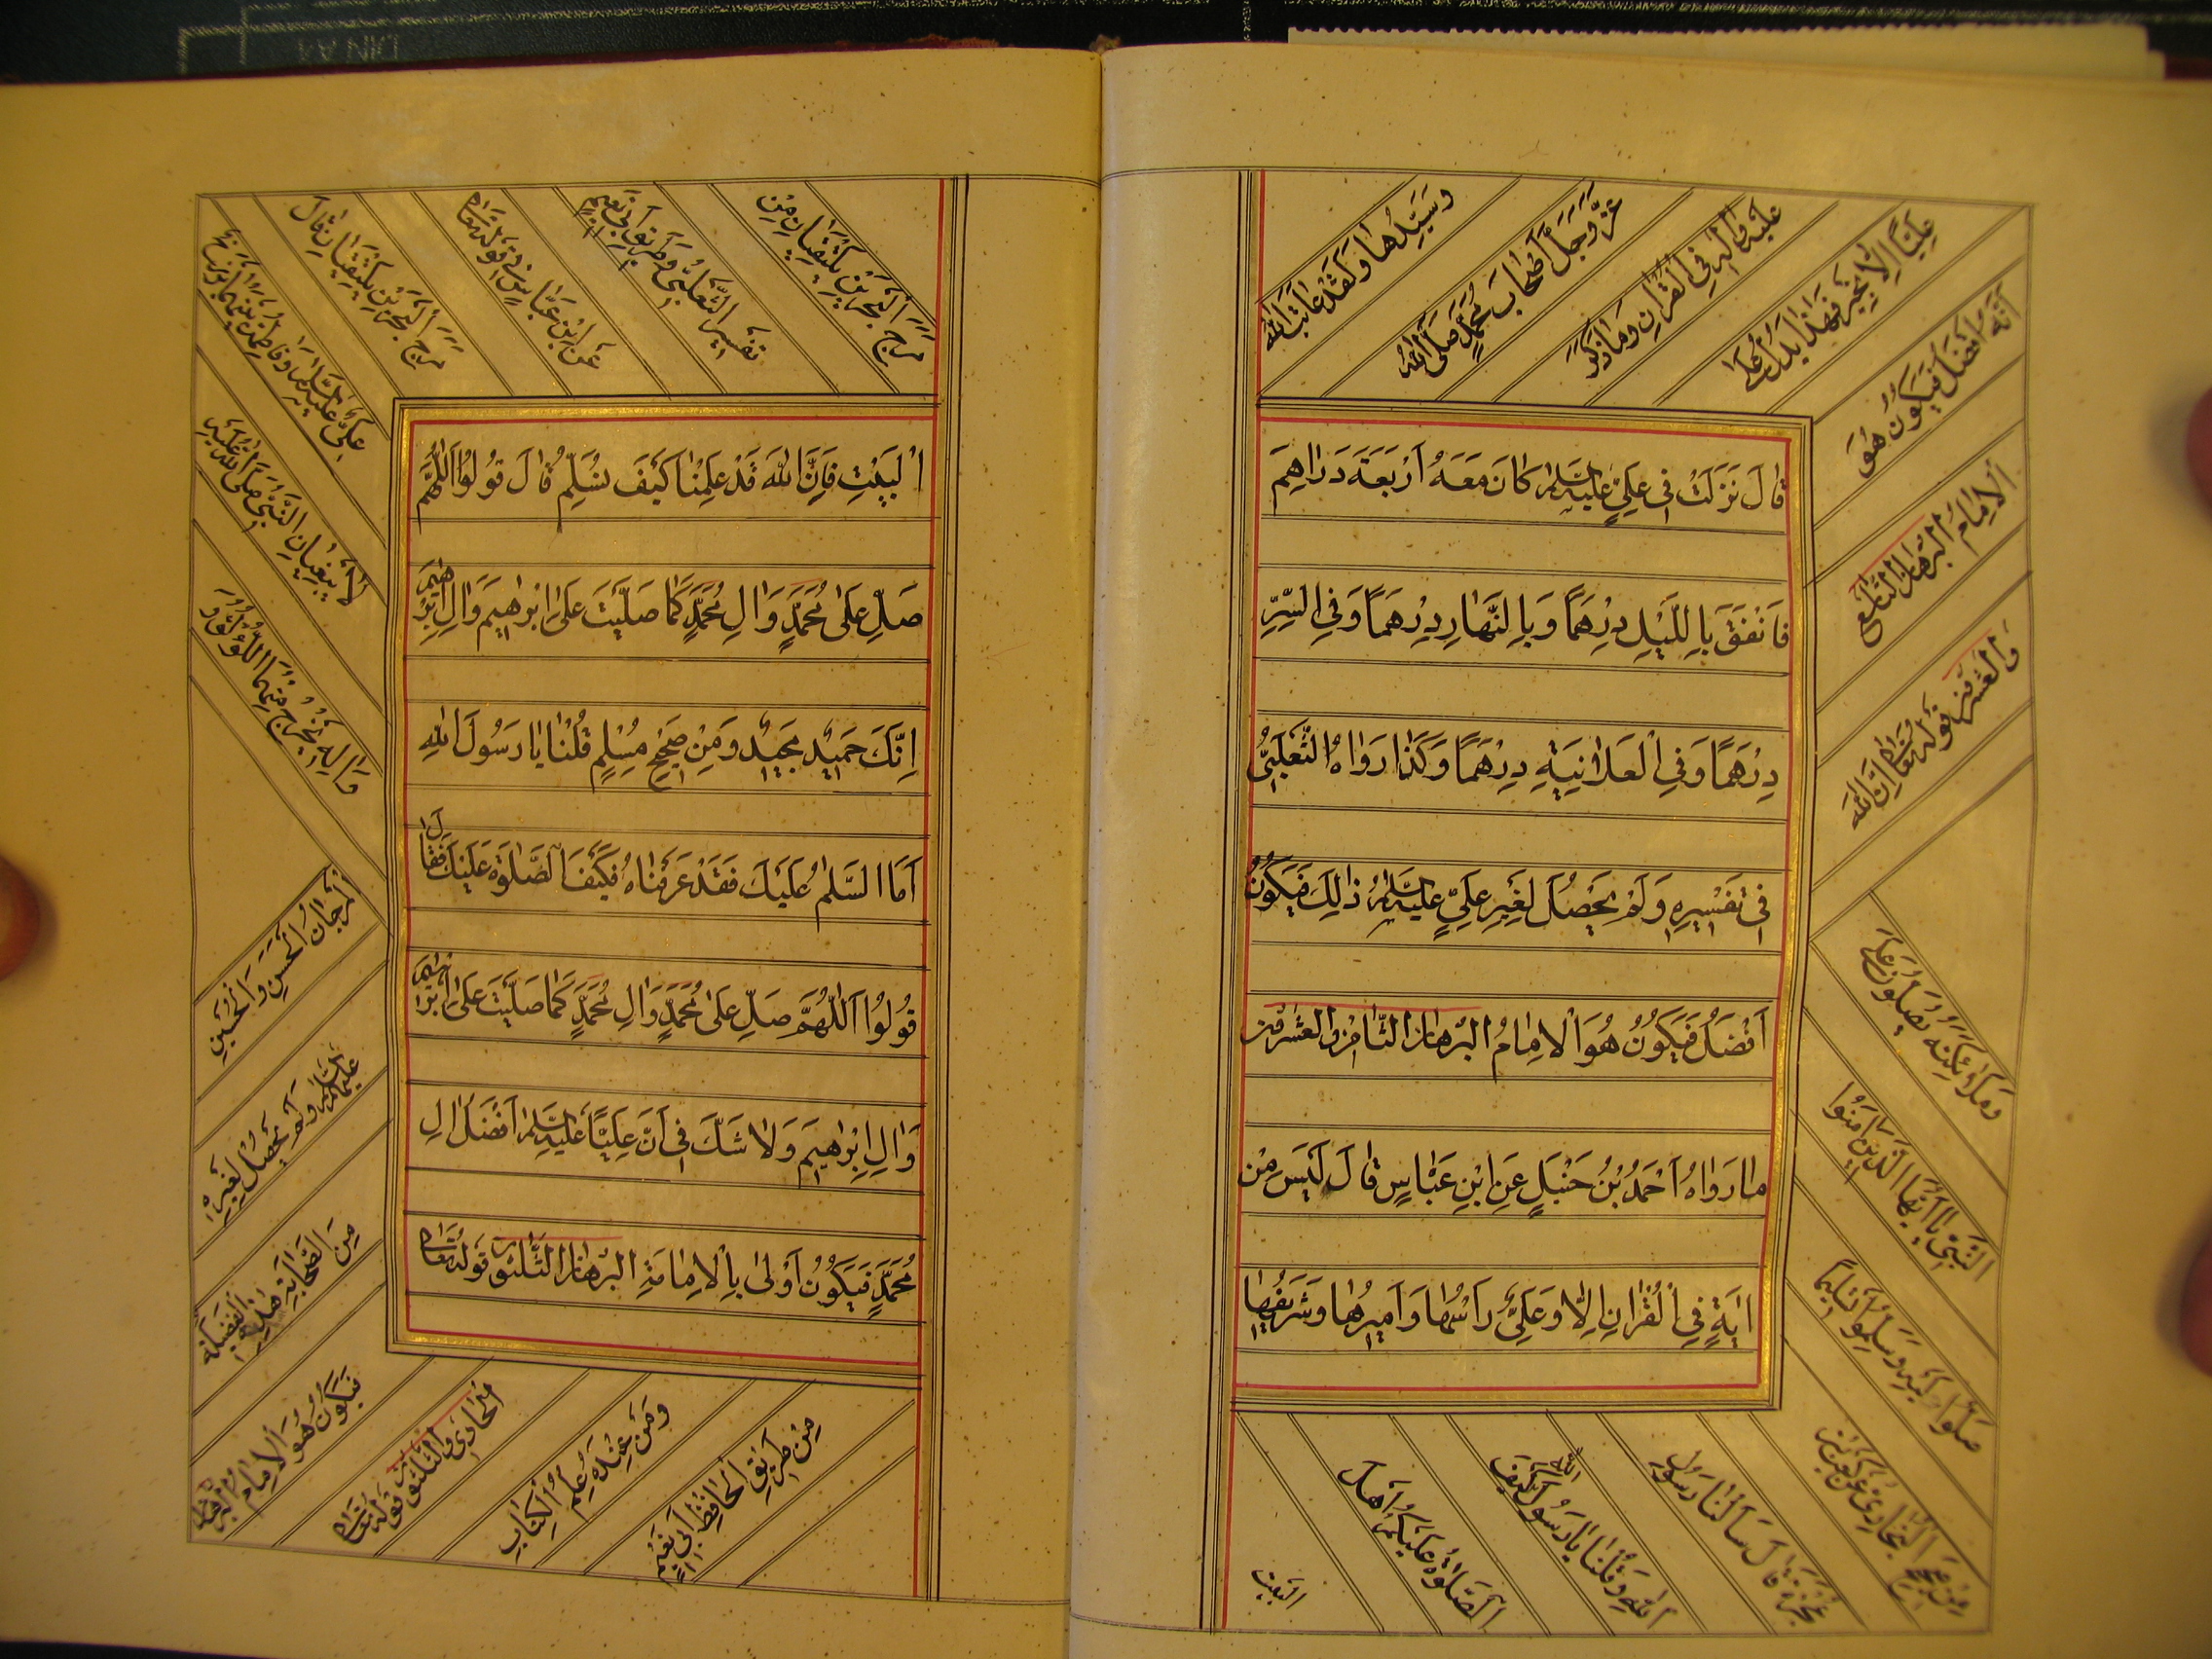 قٰالَ نَزَلَتْ فى عَلِىٍّ عَلَيْهِ السَّلٰمُ كٰانَ مَعَهُ اَرْبَعَةَ دَرٰاهِمَ
فَاَنْفَقَ بِاللَّيْلِ دِرْهَمًا وَبِالنَّهٰارِ دِرْهَمًا وَفِى السِّرِّ
دِرْهَمًا وَفِى الْعَلٰانِيَةِ دِرْهَمًا وَكَذٰا رَوٰاهُ الثَّعْلَبِىُّ
فى تَفْسيرِهِ وَلَمْ يَحْصُلْ لِغَيْرِ عَلِىٍّ عَلَيْهِ السَّلٰمُ ذٰلِكَ فَيَكُونُ
اَفْضَلَ فَيَكُونُ هُوَ الْاِمٰامُ البُرْهانُ الثّامِنُ والعشرون
مٰا رَوٰاهُ اَحْمَدُ بْنُ حَنْبَلٍ عَنِ ابْنِ عَبّٰاسٍ قٰالَ لَيْسَ مِنْ
اٰيَةٍ فِى الْقُرْاٰنِ اِلّٰا وَعَلِىٌّ رَاْسُهٰا وَاَميرُهٰا وَشَريفُهٰا
وَسَيِّدُهٰا وَلَقَدْ عٰاتَبَ اللّٰهُ
عَزَّ وَجَلَّ اَصْحٰابَ مُحَمَّدٍ صَلَّى اللّٰهُ
عَلَيْهِ وَاٰلِهِ فِى الْقُرْاٰنِ وَمٰا ذَكَرَ
عَلِيًّا اِلّٰا بِخَيْرٍ فَهٰذٰا يَدُلُّ عَلىٰ
اَنَّهُ اَفْضَلُ فَيَكُونُ هُوَ
اَلْاِمٰامُ البُرْهانُ التّاسِعُ
والعشرون قَوْلُهُ تَعٰالىٰ اِنَّ اللّٰهَ
وَمَلٰائِكَتَهُ يُصَلُّونَ عَلَى
النَّبِىِّ يٰا اَيُّهَا الَّذينَ اٰمَنُوا
صَلُّوا عَلَيْهِ وَسَلِّمُوا تَسْليمًا
مِنْ صَحيحِ الْبُخٰارِىِّ عَنْ كَعْبِ بْنِ
عُجْرَةَ قٰالَ سَاَلْنٰا رَسُولَ
اللّٰهِ وَقُلْنٰا يٰا رَسُولَ اللّٰهِ كَيْفَ
الصَّلٰوةُ عَلَيْكُمْ اَهْلَ
البَيت
اَلْبَيْتِ فَاِنَّ اللّٰهَ قَدْ عَلَّمَنٰا كَيْفَ نُسَلِّمُ قٰالَ قُولُوا اَللّٰهُمَّ
صَلِّ عَلىٰ مُحَمَّدٍ وَاٰلِ مُحَمَّدٍ كَمٰا صَلَّيْتَ عَلىٰ اِبْرٰاهيمَ وَاٰلِ اِبْرٰاهيمَ
اِنَّكَ حَميدٌ مَجيدٌ وَمِنْ صَحيحِ مُسْلِمٍ قُلْنٰا يٰا رَسُولَ اللّٰهِ
اَمَّا السَّلٰمُ عَلَيْكَ فَقَدْ عَرَفْنٰاهُ فَكَيْفَ الصَّلٰوةُ عَلَيْكَ فَقٰالَ
قُولُوا اَللّٰهُمَّ صَلِّ عَلىٰ مُحَمَّدٍ وَاٰلِ مُحَمَّدٍ كَمٰا صَلَّيْتَ عَلىٰ اِبْرٰاهيمَ
وَاٰلِ اِبْرٰاهيمَ وَلٰا شَكَّ فى اَنَّ عَلِيًّا عَلَيْهِ السَّلٰمُ اَفْضَلُ اٰلِ
مُحَمَّدٍ فَيَكُونُ اَوْلىٰ بِالْاِمٰامَةِ البُرْهانُ الثَّلٰثُونَ قَوْلُهُ تَعٰالىٰ
مَرَجَ الْبَحْرَيْنِ يَلْتَقِيٰانِ مِنْ
تَفْسيرِ الثَّعْلَبِىِّ وَطَريقِ اَبى نُعَيْمٍ
عَنِ ابْنِ عَبّٰاسٍ فى قَوْلِهِ تَعٰالىٰ
مَرَجَ الْبَحْرَيْنِ يَلْتَقِيٰانِ قٰالَ
عَلِىٌّ عَلَيْهِ السَّلٰمُ وَفٰاطِمَةُ بَيْنَهُمٰا بَرْزَخٌ
لٰا يَبْغِيٰانِ النَّبِىُّ صَلَّى اللّٰهُ عَلَيْهِ
وَاٰلِهِ يَخْرُجُ مِنْهُمَا اللُّؤْلُؤُ وَ
الْمَرْجٰانُ الْحَسَنُ وَالْحُسَيْنُ
عَلَيْهِمَا السَّلٰمُ وَلَمْ يَحْصُلْ لِغَيْرِهِ
مِنَ الصَّحٰابَةِ هٰذِهِ الْفَضيلَةُ
فَيَكُونُ هُوَ الْاِمٰامُ البرهان
الْحٰادى والثلثون قَوْلُهُ تَعٰالىٰ
وَمَنْ عِنْدَهُ عِلْمُ الْكِتٰابِ
مِنْ طَريقِ الْحٰافِظِ اَبى نُعَيْمٍ